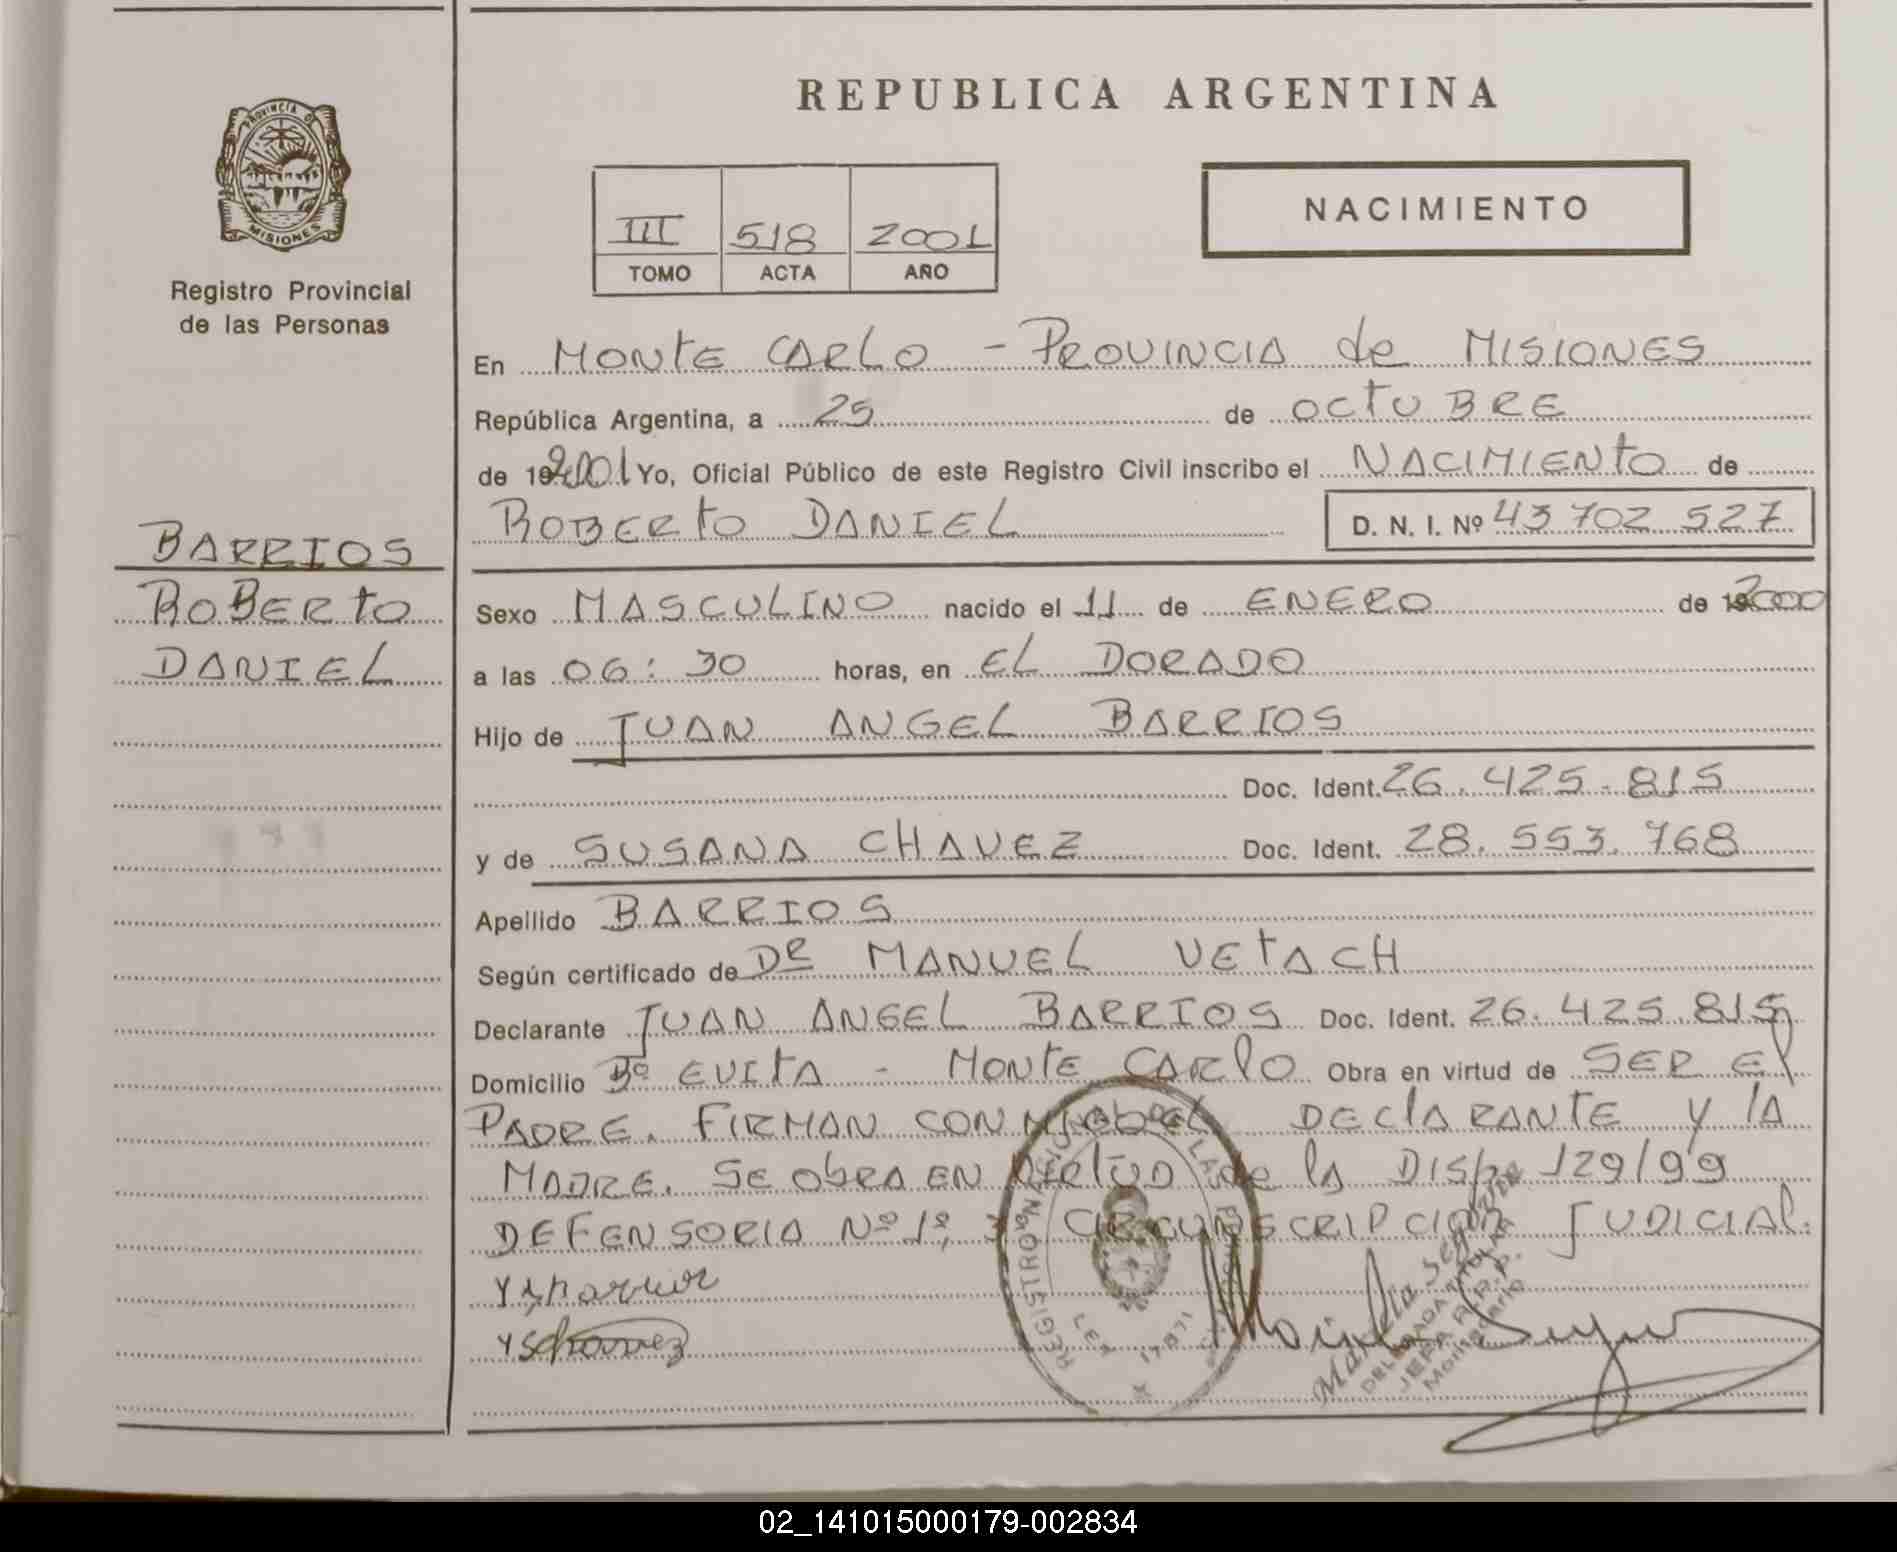 PROVINCIA DE
MISIONES
Registro Provincial
de las Personas
BARRIOS
ROBERTO
DANIEL
REPUBLICA ARGENTINA
III 518 2001
TOMO ACTA AÑO
NACIMIENTO
En MONTE CARLO - PROVINCIA de MISIONES
República Argentina, a 25 de OCTUBRE
de 2001 Yo, Oficial Público de este Registro Civil inscribo el NACIMIENTO de
ROBERTO DANIEL D. N. I. Nº 43 702 527
Sexo MASCULINO nacido el 11 de ENERO de 2000
a las 06:30 horas, en EL DORADO
Hijo de JUAN ANGEL BARRIOS
Doc. Ident. 26.425.815
y de SUSANA CHAVEZ Doc. Ident. 28.553.768
Apellido BARRIOS
Según certificado de Dr MANUEL VETACH
Declarante JUAN ANGEL BARRIOS Doc. Ident. 26.425.815
Domicilio Bº EVITA - MONTE CARLO Obra en virtud de SER El
PADRE. FIRMAN CONMIGO El DEClARANTE Y lA
MADRE. SE ObRA EN VIRTUD de lA DISP. 129/99
DEFENSORIA Nº 1, CIRCUNSCRIPCION JUDICIAL.
REGISTRO NACIONAL DE LAS PERSONAS
LEY 17671
DELEGADA TITULAR
JEFA R.P.P.
Montecarlo
02_141015000179-002834